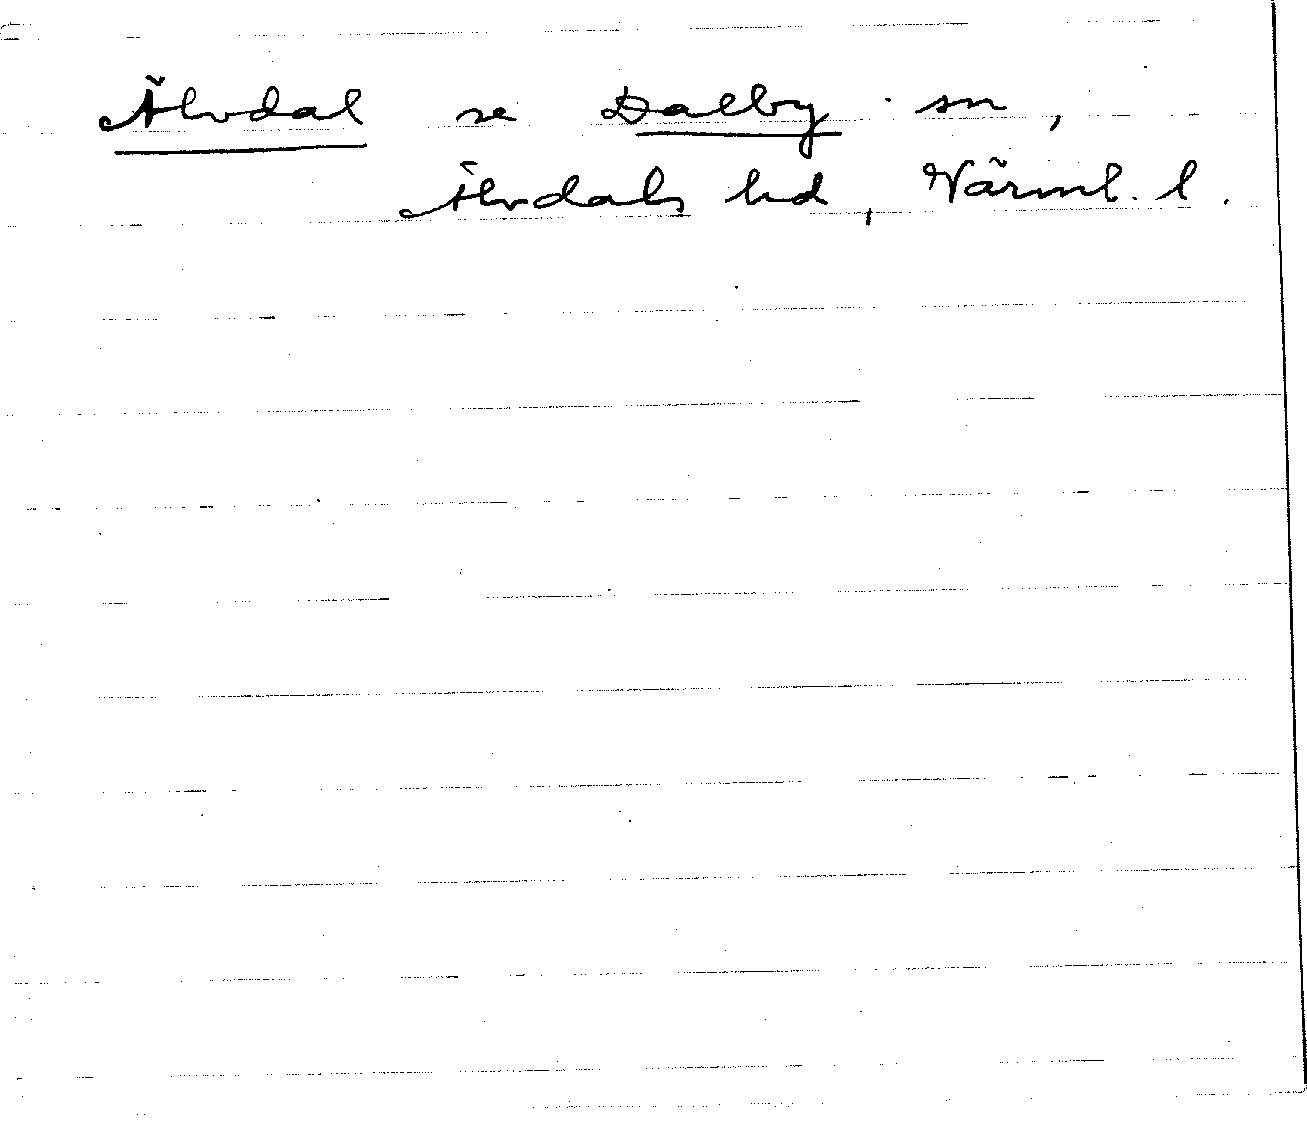 Älvdal se Dalby sn,
Älvdals hd, Värml. l.